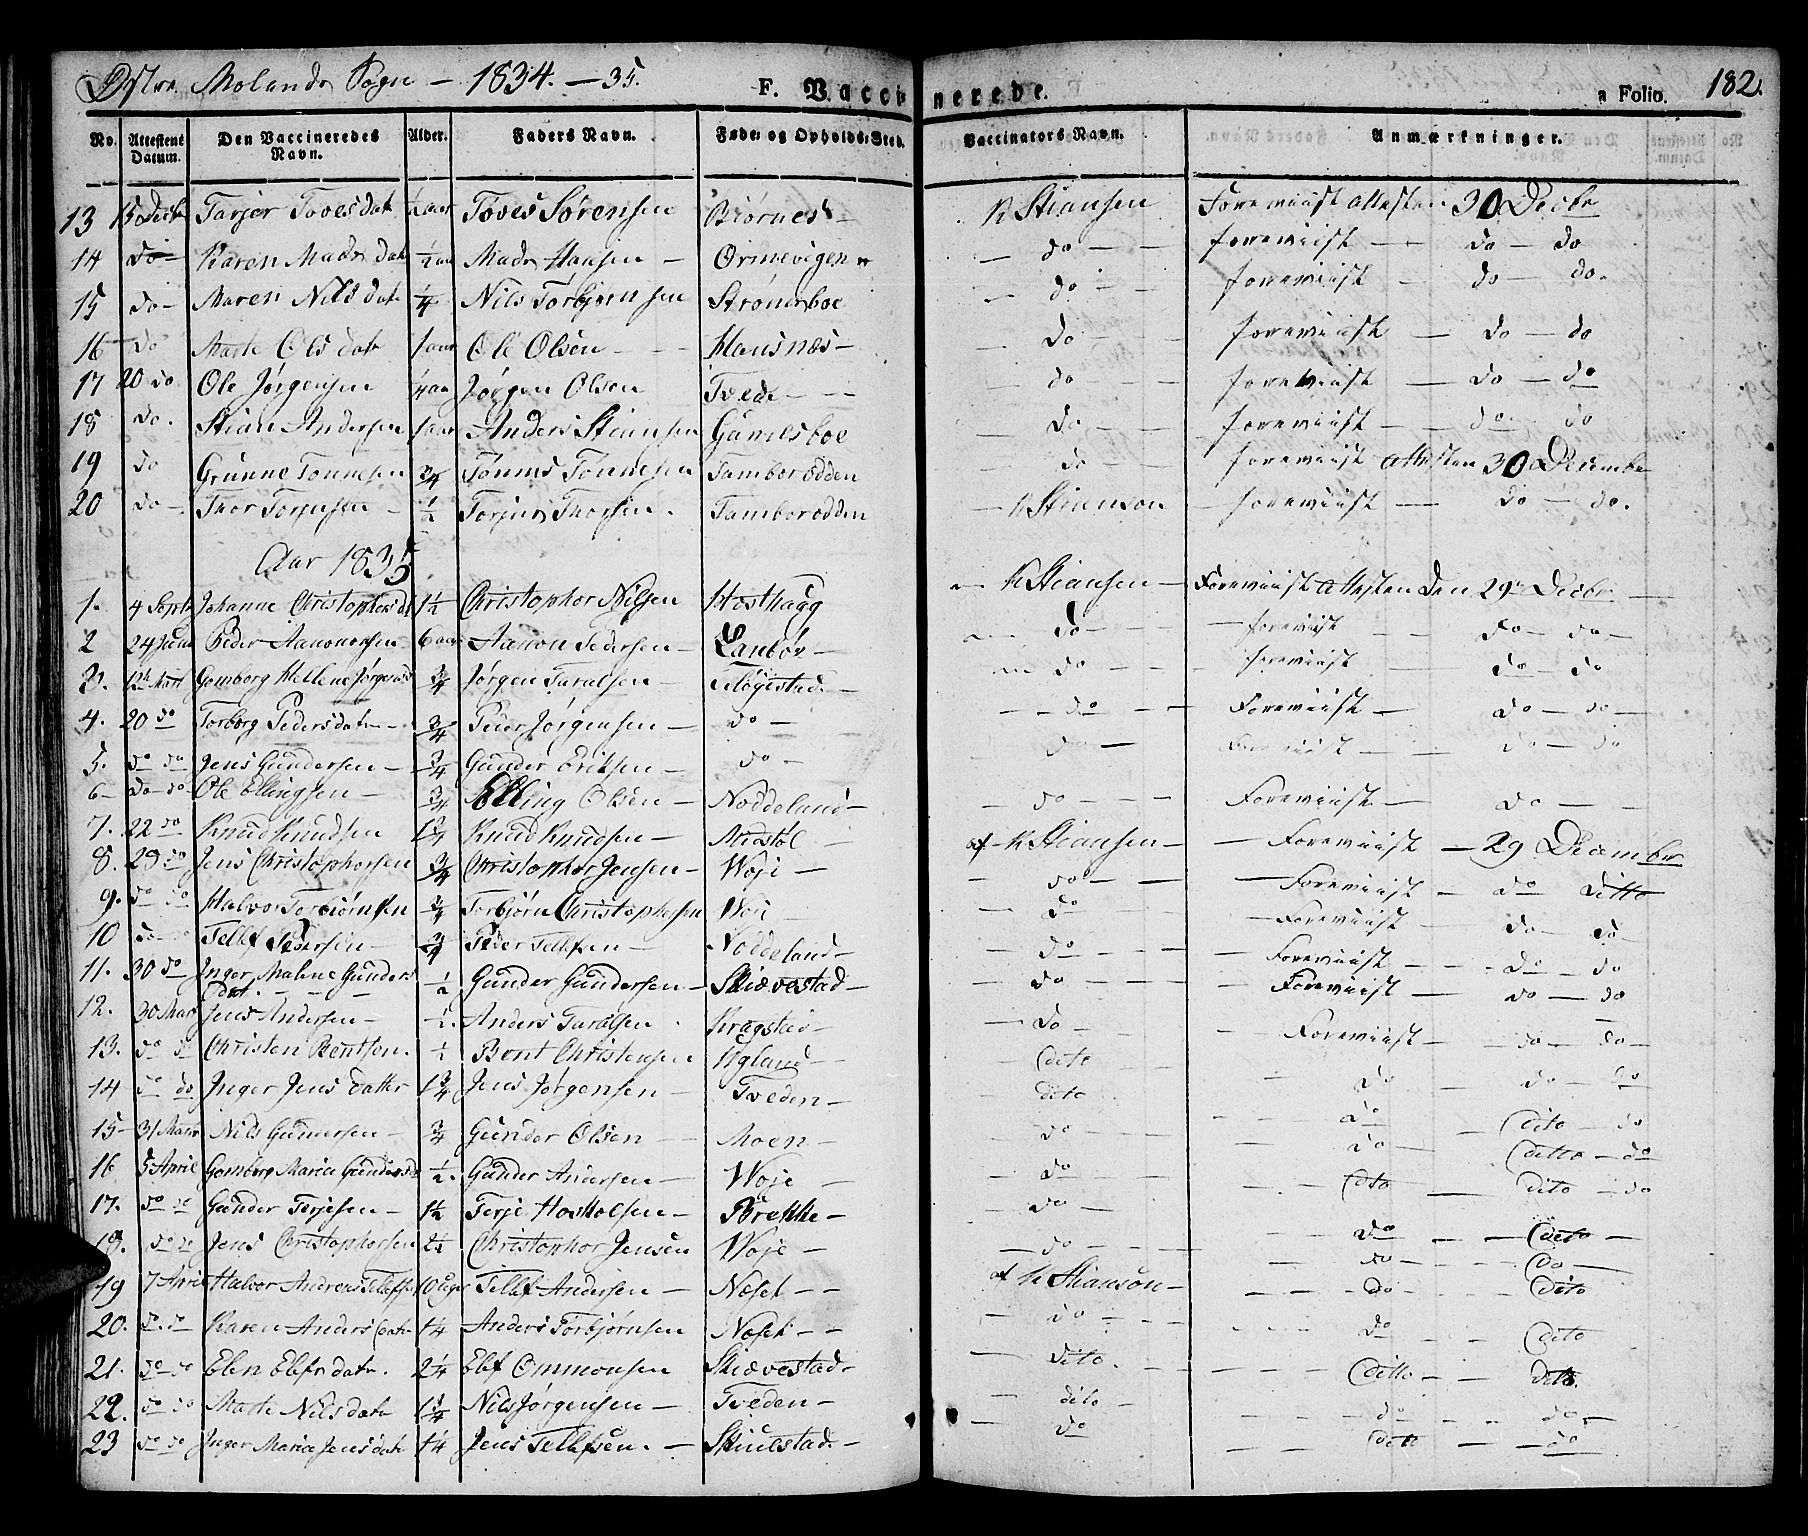 Østre Molands Sogn – 1834. – 35.
F. Vaccinerede.
a Folio. 182.
No. Attestens Datum. Den Vaccineredes Navn. Alder. Faders Navn. Føde- og Opholds-Sted. Vaccinators Navn. Anmærkninger.
13 15 Decbr Tarjer Tovesdat ½ aar Toves Sørensen Biørnes – K Stiansen Foreviist Attesten 30 Decbr
14 do – Karen Madsdat ½ aar Mads Hansen – Ormevigen – do – – foreviist – – do – do
15 do – Maren Nilsdat ¼ Nils Torbjørnsen Strømsboe – do – – foreviist – do – do.
16 – do Marte Olsdat 1 aar Ole Olsen – – Hausnæs – – do – – foreviist – do – do
17 20 do Ole Jørgensen ¼ aar Jørgen Olsen Tvede – – – do – – foreviist – do – do
18 do. Stian Andersen 1 aar Anders Stiansen Gamelsboe – do – – foreviist – do – do
19 do Gunne Tonnesen ¾ Tønnes Tønnesen Tamberodden – do – – foreviist Attesten 30 December
20 do – Thor Torjussen – ½ Torjus Thorsen. Tamborodden – K Stiansen – foreviist – do – do.
Aar 1835
1. 4 Septb Johanne Christophersd 1½ Christophor Nilsen Hosthagg – K Stiansen – Foreviist Attesten den 29 Decbr –
2 24 Juni Peder Aanonsen – 6 aar Aanon Pedersen – Langbør – – do – – – foreviist – do – do –
3. 12te Mart Gomborg Hellene Jørgensd ¾ Jørgen Taralsen – Fløgstad – – do – – – foreviist – do – do
4. 20 do Torborg Pedersdatr – ¾ Peder Jørgensen – do – – – do – – Foreviist – do – do –
5. do do Jens Gundersen – ¾ Gunder Eriksen – do – do – Foreviist – do – do
6 – do – do Ole Ellingsen – ¾ Elling Olsen – Noddeland – – do – – – Foreviist – do – –
7. 22 do Knud Knudsen 1¾ Knud Knudsen – Midtøl – af K Stiansen – – Foreviist – 29 December
8. 29 do Jens Christophersen ¾ Christophor Jensen – Woje – – do – – – Foreviist – do ditto
9. do do Halvor Torbiørnsen ¾ Torbjørn Christophersen Woje – – do – Foreviist do – do –
10 do – do Tellef Pedersen – ¾ Peder Tellefsen – Noddeland – – do – – – Foreviist – – do – do
11. 30 do Inger Maline Gunders ½ Gunder Gundersen – Skiævestad – – do – – – Foreviist – – do – do
dat. – – –
12. 30 Mar Jens Andersen – ½. Anders Taralsen. Kragstad – – do – – Foreviist – do – do –
13. do do Christen Bentsen. ½ Bent Christensen Ugland – – dito
14 do do Inger Jens datter 1¾ Jens Jørgensen – Tveden – – dito – do do – do
15 – 31 Marts Nils Gundersen – ¾ Gunder Olsen – Moen – – do – – – – do – dito – do
16 5 April Gomborg Maria Gundersd ½. Gunder Andersen – Woje – – do – – do – ditto – do
17. do do Gunder Terjesen – 1½ Terje Hoskolsen – Brekke – – do – – dito – dito – do
18. do do Jens Christophersen 2½ Christophor Jensen Woje – – do – – – do – – – dito –
19 7 April Halvor Andreas Tellefsen 10 Uger Tellef Andersen – Næset – – af K Stianson – – – do – – dito
20. do do Karen Anders datr 1¼ Anders Torbjørnsen Næset – – – do – – – – do – – dito
21. do do Elen Elefsdatr. 2¼ Elef Ommonsen Skiævestad – – dito. – – ditto – – dito.
22. do do Marte Nilsdatr 1¾ Nils Jørgensen – Tveden – – dito – – – – do – – do –
23 do do Inger Maria Jensdatr 1¼ Jens Tellefsen. – Skiulstad – – do – – – dito – – do –